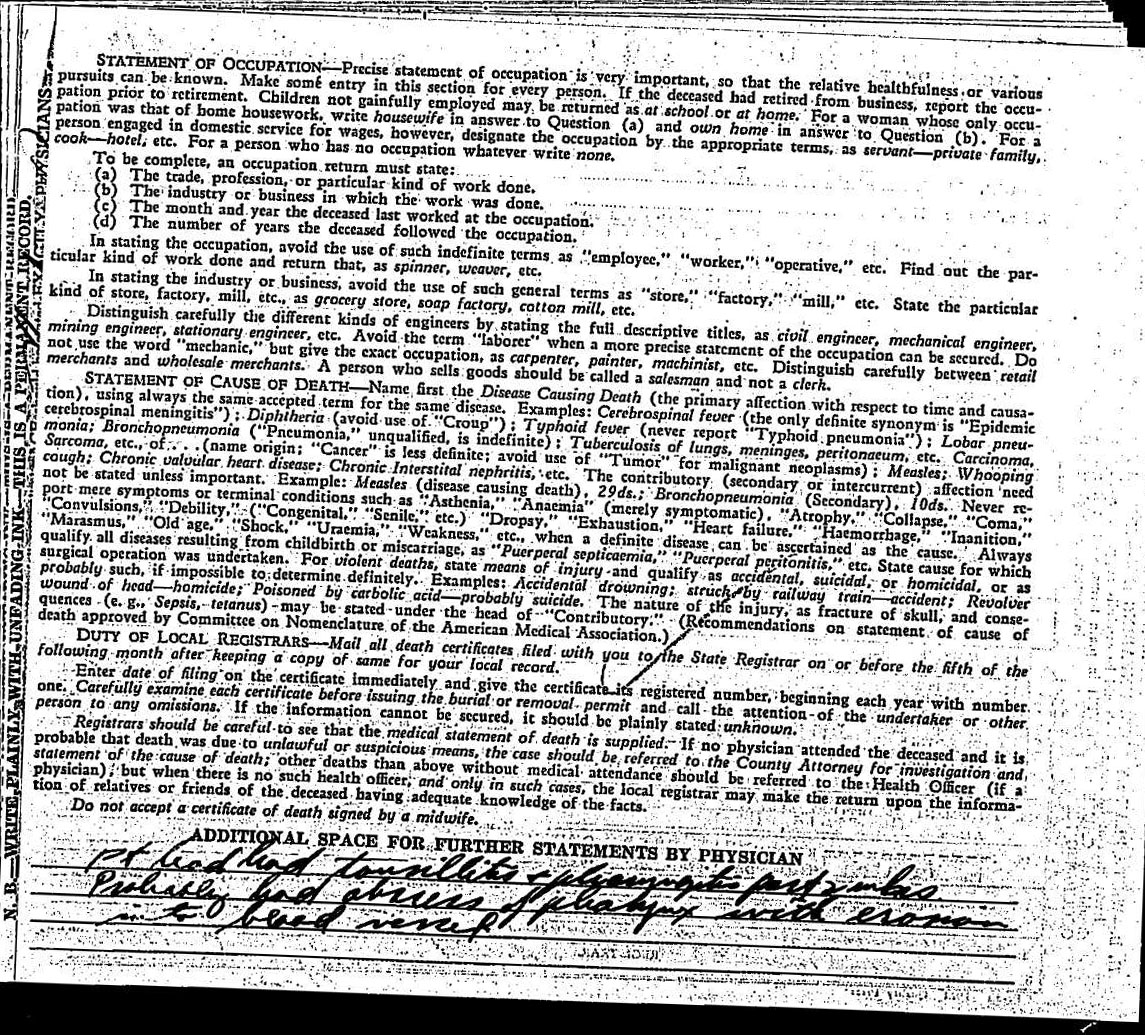 STATEMENT OF OCCUPATION—Precise statement of occupation is very important, so that the relative healthfulness or various
pursuits can be known. Make some entry in this section for every person. If the deceased had retired from business, report the occu-
pation prior to retirement. Children not gainfully employed may be returned as at school or at home. For a woman whose only occu-
pation was that of home housework, write housewife in answer to Question (a) and own home in answer to Question (b). For a
person engaged in domestic service for wages, however, designate the occupation by the appropriate terms, as servant—private family,
cook—hotel, etc. For a person who has no occupation whatever write none.
To be complete, an occupation return must state:
(a) The trade, profession, or particular kind of work done.
(b) The industry or business in which the work was done.
(c) The month and year the deceased last worked at the occupation.
(d) The number of years the deceased followed the occupation.
In stating the occupation, avoid the use of such indefinite terms as "employee," "worker," "operative," etc. Find out the par-
ticular kind of work done and return that, as spinner, weaver, etc.
In stating the industry or business, avoid the use of such general terms as "store," "factory," "mill," etc. State the particular
kind of store, factory, mill, etc., as grocery store, soap factory, cotton mill, etc.
Distinguish carefully the different kinds of engineers by stating the full descriptive titles, as civil engineer, mechanical engineer,
mining engineer, stationary engineer, etc. Avoid the term "laborer" when a more precise statement of the occupation can be secured. Do
not use the word "mechanic," but give the exact occupation, as carpenter, painter, machinist, etc. Distinguish carefully between retail
merchants and wholesale merchants. A person who sells goods should be called a salesman and not a clerk.
STATEMENT OF CAUSE OF DEATH—Name first the Disease Causing Death (the primary affection with respect to time and causa-
tion), using always the same accepted term for the same disease. Examples: Cerebrospinal fever (the only definite synonym is "Epidemic
cerebrospinal meningitis"); Diphtheria (avoid use of "Croup"); Typhoid fever (never report "Typhoid pneumonia"); Lobar pneu-
monia; Bronchopneumonia ("Pneumonia," unqualified, is indefinite); Tuberculosis of lungs, meninges, peritonaeum, etc. Carcinoma,
Sarcoma, etc., of . . . (name origin; "Cancer" is less definite; avoid use of "Tumor" for malignant neoplasms); Measles; Whooping
cough; Chronic valvular heart disease; Chronic Interstital nephritis, etc. The contributory (secondary or intercurrent) affection need
not be stated unless important. Example: Measles (disease causing death), 29ds.; Bronchopneumonia (Secondary), 10ds. Never re-
port mere symptoms or terminal conditions such as "Asthenia," "Anaemia" (merely symptomatic), "Atrophy," "Collapse," "Coma,"
"Convulsions," "Debility," ("Congenital," "Senile," etc.) "Dropsy," "Exhaustion," "Heart failure," "Haemorrhage," "Inanition,"
"Marasmus," "Old age," "Shock," "Uraemia," "Weakness," etc., when a definite disease can be ascertained as the cause. Always
qualify all diseases resulting from childbirth or miscarriage, as "Puerperal septicaemia," "Puerperal peritonitis," etc. State cause for which
surgical operation was undertaken. For violent deaths, state means of injury and qualify as accidental, suicidal, or homicidal, or as
probably such, if impossible to determine definitely. Examples: Accidental drowning; struck by railway train—accident; Revolver
wound of head—homicide; Poisoned by carbolic acid—probably suicide. The nature of the injury, as fracture of skull, and conse-
quences (e. g., Sepsis, tetanus) may be stated under the head of "Contributory." (Recommendations on statement of cause of
death approved by Committee on Nomenclature of the American Medical Association.)
DUTY OF LOCAL REGISTRARS—Mail all death certificates filed with you to the State Registrar on or before the fifth of the
following month after keeping a copy of same for your local record.
Enter date of filing on the certificate immediately and give the certificate its registered number, beginning each year with number
one. Carefully examine each certificate before issuing the burial or removal permit and call the attention of the undertaker or other
person to any omissions. If the information cannot be secured, it should be plainly stated unknown.
Registrars should be careful to see that the medical statement of death is supplied. If no physician attended the deceased and it is
probable that death was due to unlawful or suspicious means, the case should be referred to the County Attorney for investigation and
statement of the cause of death; other deaths than above without medical attendance should be referred to the Health Officer (if a
physician); but when there is no such health officer, and only in such cases, the local registrar may make the return upon the informa-
tion of relatives or friends of the deceased having adequate knowledge of the facts.
Do not accept a certificate of death signed by a midwife.
ADDITIONAL SPACE FOR FURTHER STATEMENTS BY PHYSICIAN
Pt had had tonsillitis & pharyngitis past 2 wks
Probably had abscess of pharynx with erosion
into blood vessel
N. B.—WRITE PLAINLY WITH UNFADING INK—THIS IS A PERMANENT RECORD.